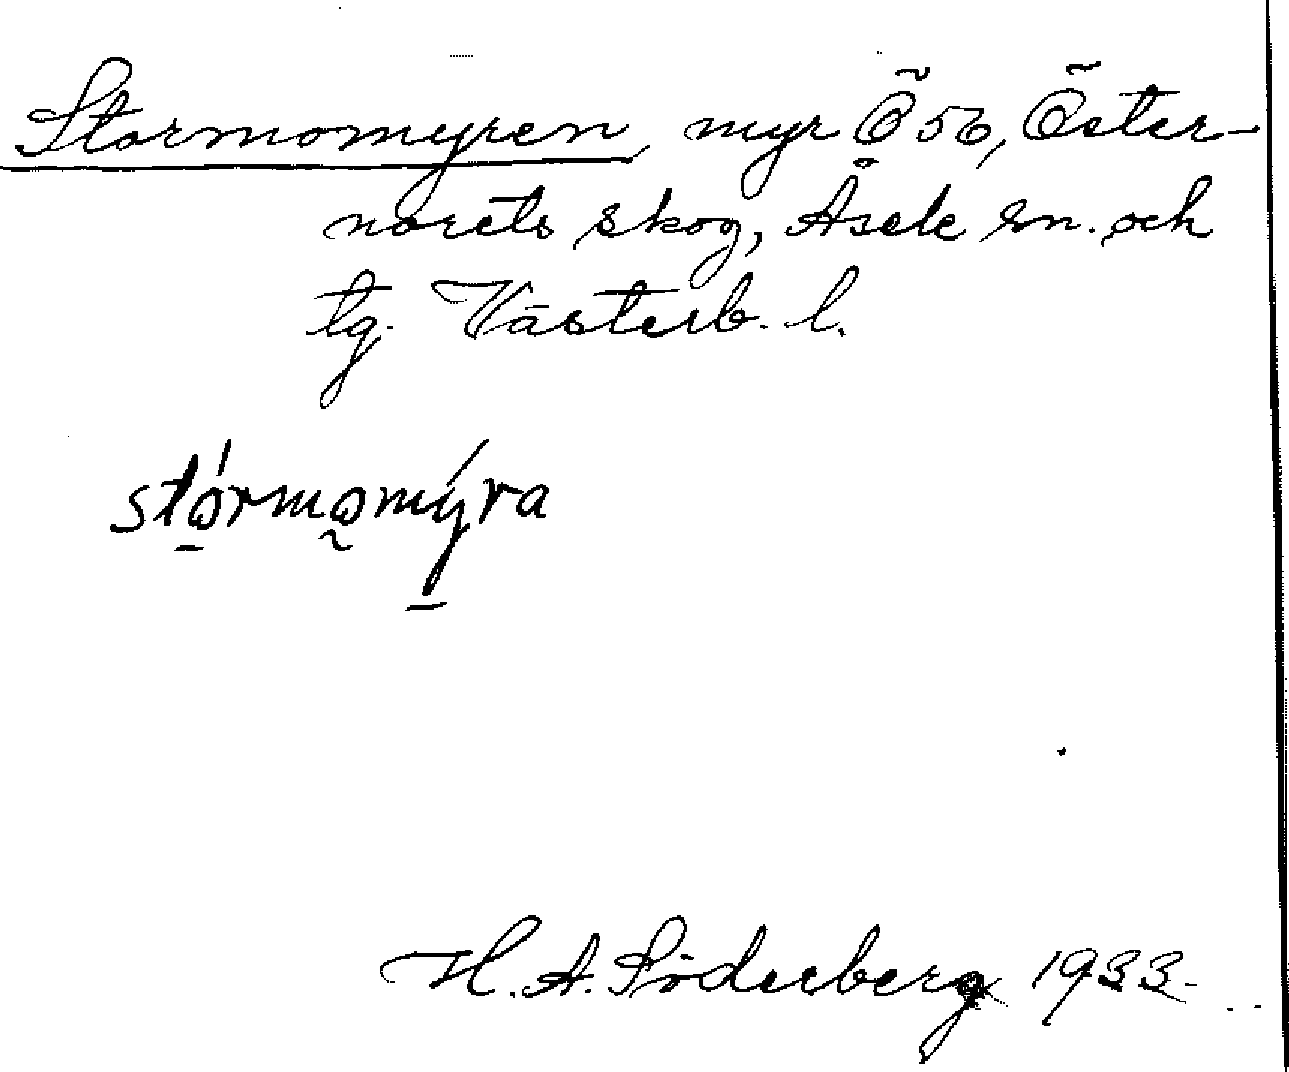 Stormomyren, myr Ö 56, Öster-
norets skog, Åsele sn. och
tg. Västerb. l.
stórmo̰mýra
H. A. Söderberg 1933.